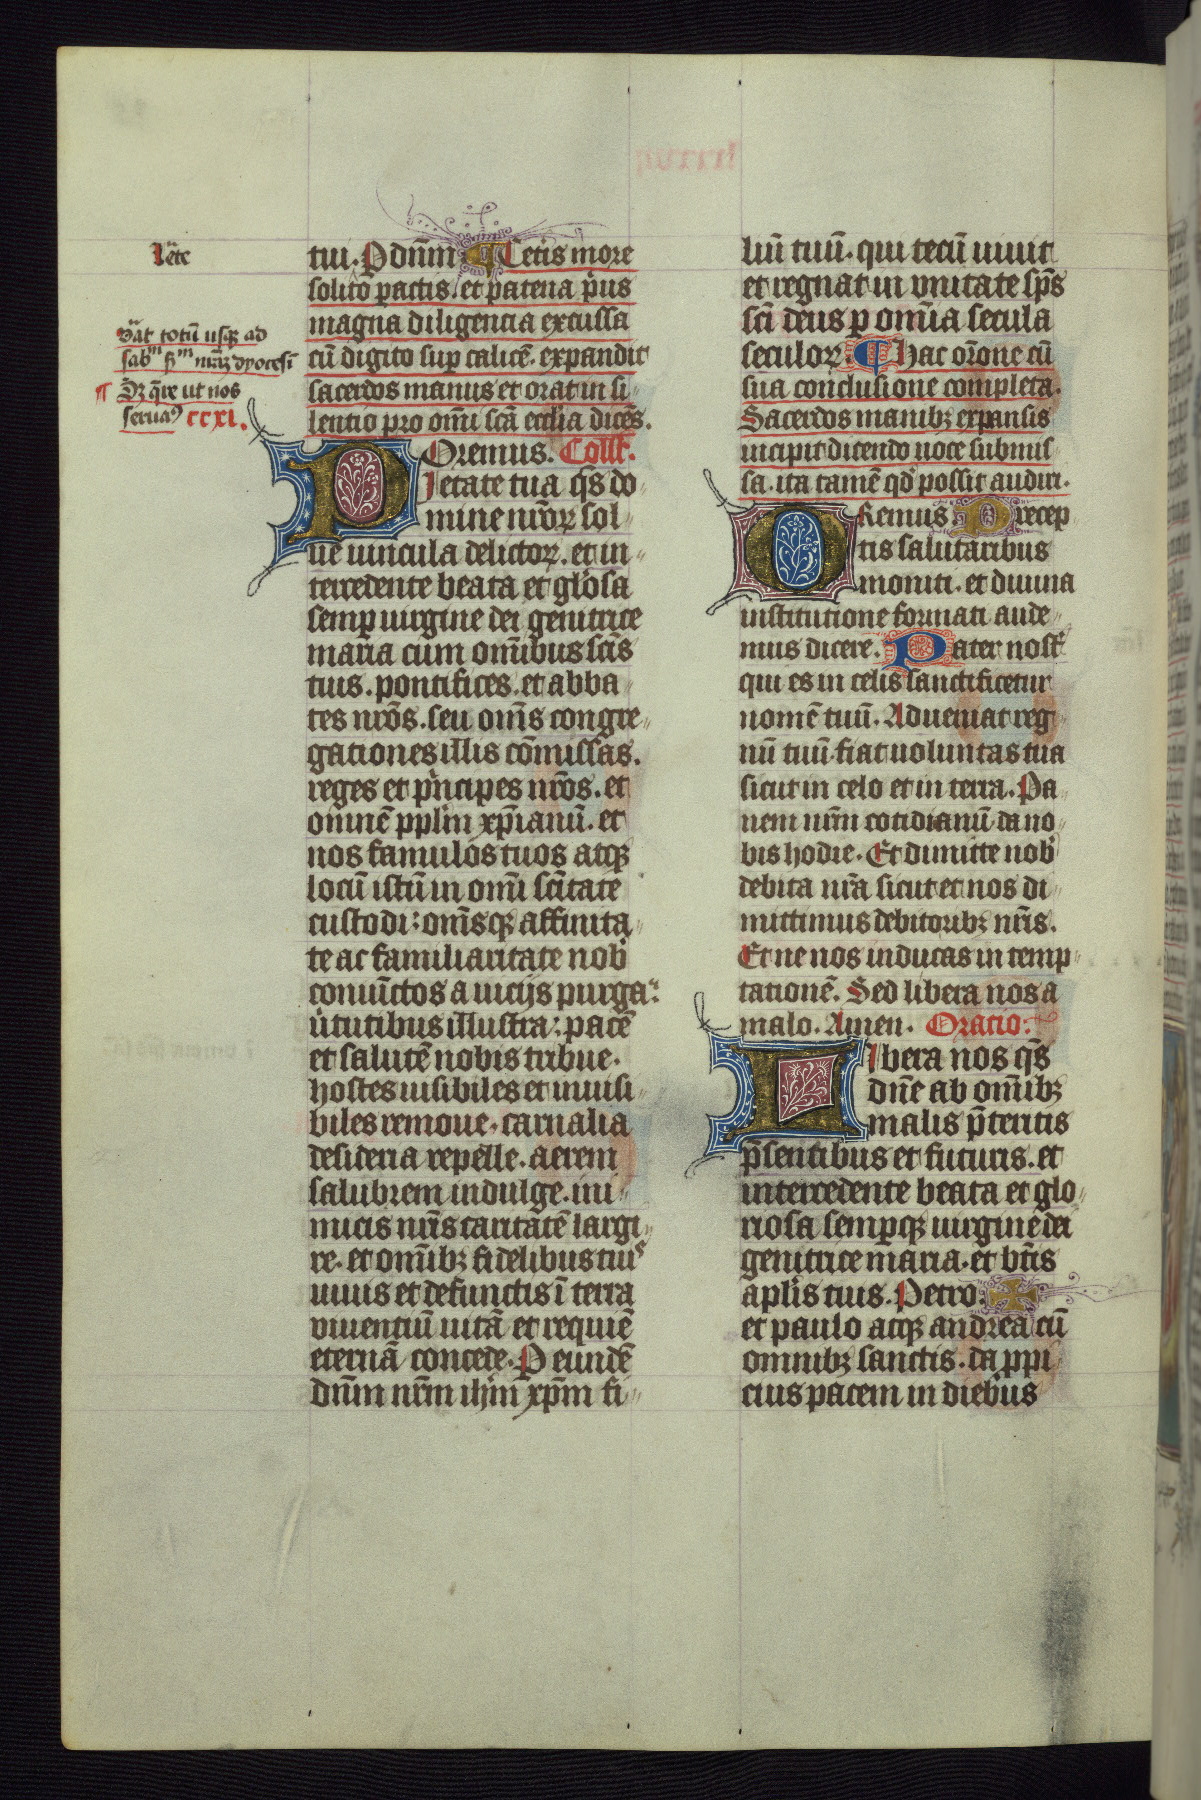 tui. P dn̄m ¶ Cet̄is more
solito ꝑactis. et patena pius
magna diligencia excussa
cū digito sup calicē. expandit
sacerdos manus et orat in si-
lentio pro om̄i sc̄a ecc̄lia dicēs.
Oremus. Coll̄c.
Pietate tua q̄s do-
mine nr̄oꝝ sol-
ue uincula delictoꝝ. et in-
tercedente beata et gl̄osa
semp uirgine dei genitrice
maria cum om̄ibus sc̄is
tuis. pontifices. et abba-
tes nr̄os. seu om̄s congre-
gationes illis cōmissas.
reges et p̄ncipes nr̄os. et
omnē pplm̄ xp̄ianū. et
nos famulos tuos atqꝫ
locū istū in om̄i sc̄itate
custodi: om̄sqꝫ affinita-
te ac familiaritate nob̄
coniūctos a uicijs purga:
ūtutibus illustra: pacē
et salutē nobis tribue.
hostes uisibiles et inuisi-
biles remoue. carnalia
desideria repelle. aerem
salubrem indulge. ini-
micis nr̄is caritatē largi-
re. et om̄ibꝫ fidelibus tuis
uiuis et defunctis ī terra
viuentiū uitā et requiē
eternā concede. P eundē
dn̄m nr̄m ihm̄ xp̄m fi-
vāt totū usqꝫ ad
¶ Oꝝ q̄re ut nos
CCXI.
liū tuū. qui tecū uiuit
et regnat in vnitate sp̄s
sc̄i deus p om̄ia secula
seculoꝝ. ¶ Hac or̄one cū
sua conclusione completa.
Sacerdos manibꝫ expansis
incipit dicendo uoce submis-
sa. ita tamē qd̄ possit audiri.
Oremus Precep-
tis salutaribus
moniti. et diuina
institutione formati aude-
mus dicere. Pater nost̄
qui es in celis sanctificetur
nomē tuū. Adueniat reg-
nū tuū. fiat uoluntas tua
sicut in celo et in terra. Pa-
nem nr̄m cotidianū da no-
bis hodie. Et dimitte nob̄
debita nr̄a sicut et nos di-
mittimus debitoribꝫ nr̄is.
Et ne nos inducas in temp-
tationē. Sed libera nos a
malo. Amen. Oratio:
Libera nos q̄s
dn̄e ab om̄ibꝫ
malis p̄teritis
p̄sentibus et futuris. et
intercedente beata et glo-
riosa sempqꝫ uirgine dei
genitrice maria. et bt̄is
apl̄is tuis. Petro.
et paulo atqꝫ andrea cū
omnibꝫ sanctis. da ppi-
cius pacem in diebus